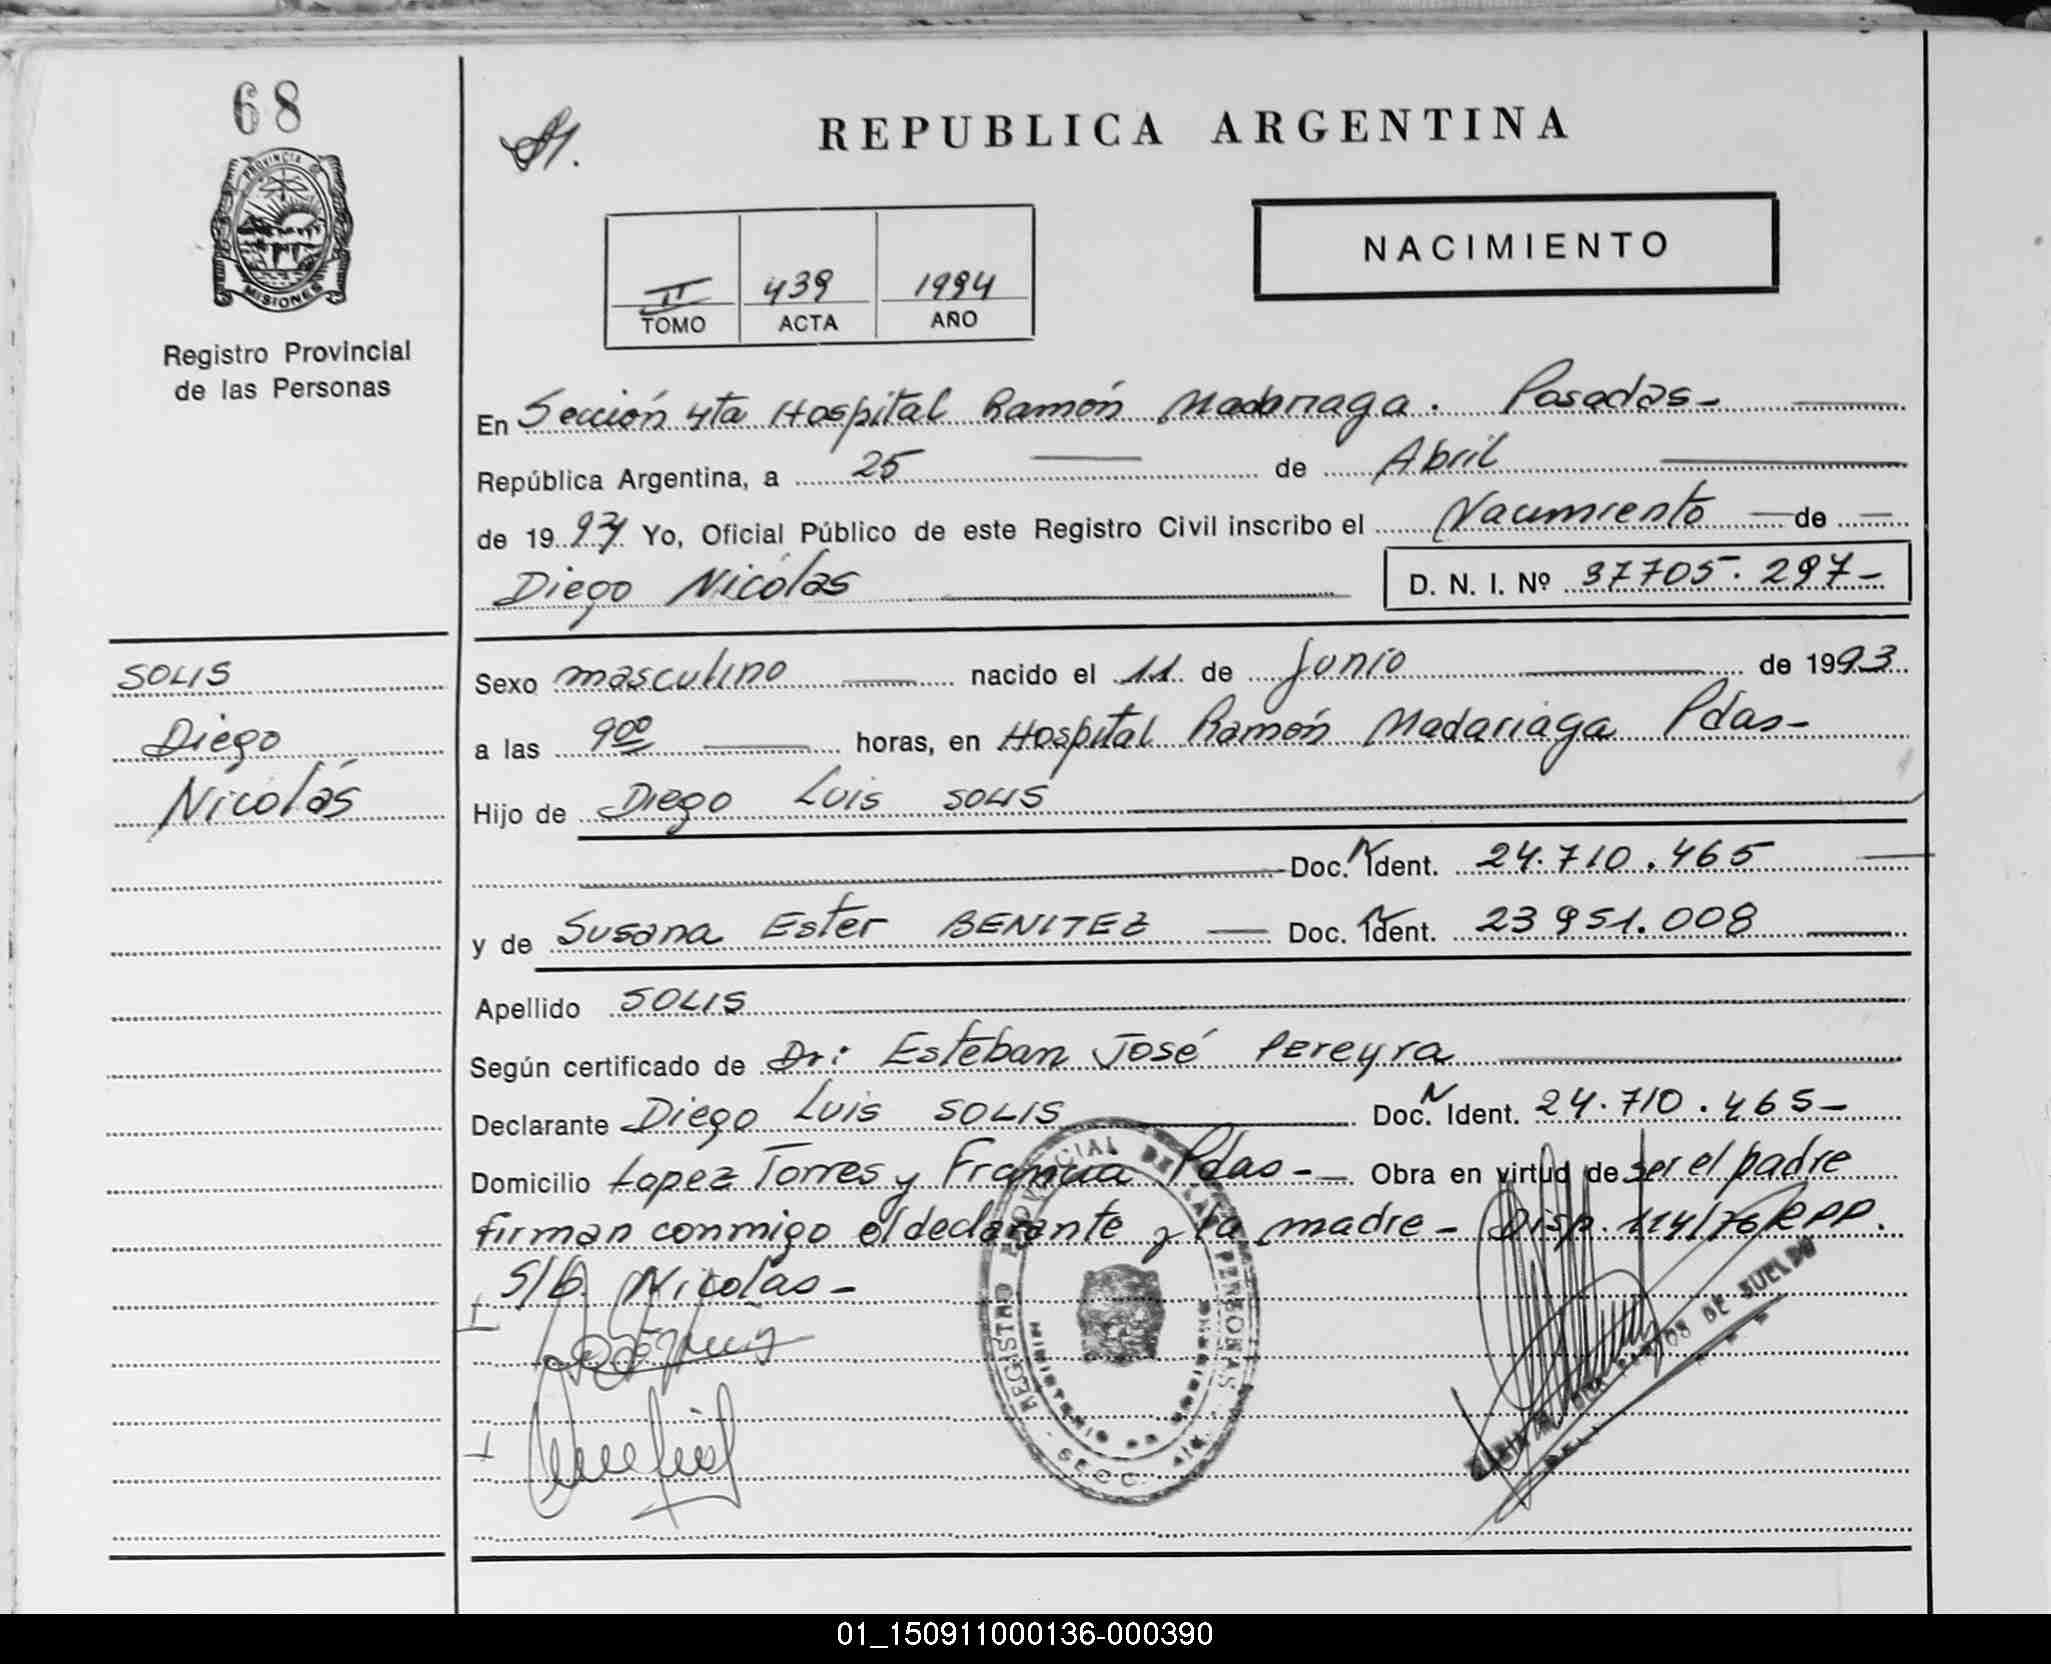 68
PROVINCIA DE
MISIONES
Registro Provincial
de las Personas
REPUBLICA ARGENTINA
NACIMIENTO
II 439 1994
TOMO ACTA AÑO
En Sección 4ta Hospital Ramón Madariaga. Posadas-
República Argentina, a 25 de Abril
de 1994 Yo, Oficial Público de este Registro Civil inscribo el Nacimiento de
Diego Nicolás D. N. I. Nº 37705.297-
SOLIS
Diego
Nicolás
Sexo masculino nacido el 11 de Junio de 1993
a las 9 00 horas, en Hospital Ramón Madariaga Pdas-
Hijo de Diego Luis SOLIS
Doc. N Ident. 24.710.465
y de Susana Ester BENITEZ Doc. N Ident. 23951.008
Apellido SOLIS
Según certificado de Dr: Esteban José Pereyra
Declarante Diego Luis SOLIS Doc. N Ident. 24.710.465-
Domicilio Lopez Torres y Francia Pdas- Obra en virtud de ser el padre
firman conmigo el declarante y la madre- Disp. 114/76 RPP.
S/b. Nicolás-
REGISTRO PROVINCIAL DE LAS PERSONAS
MINISTERIO DE
SECC. 4ta.
DE SUELDO
01_150911000136-000390